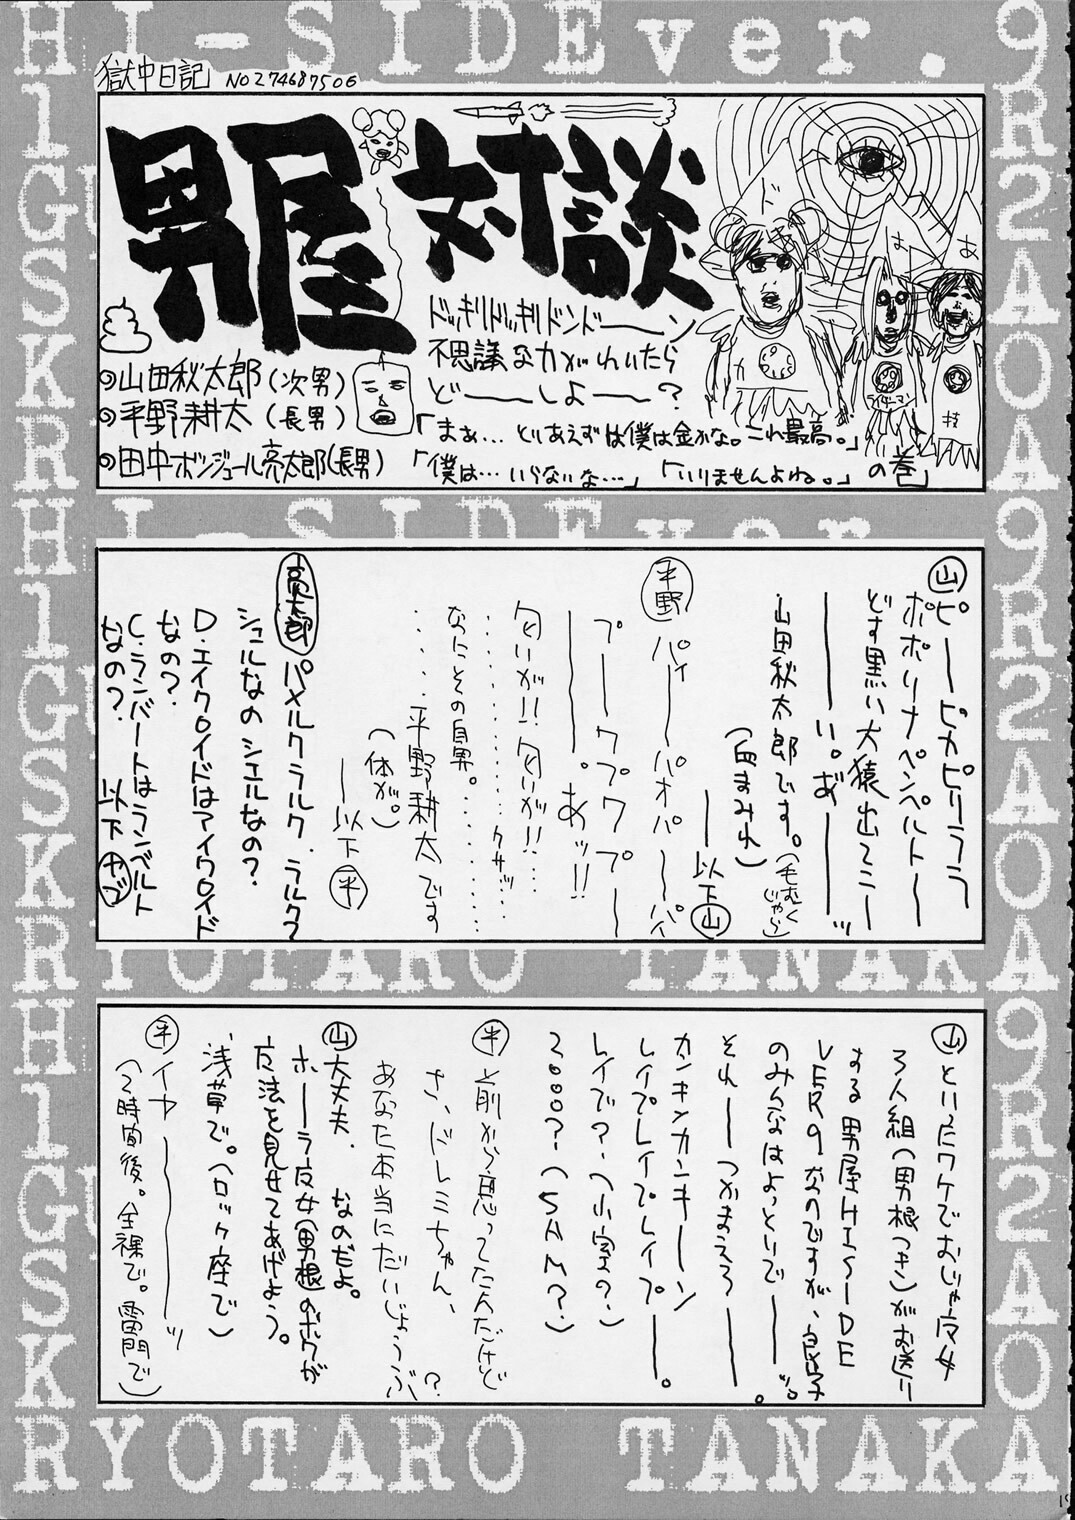 HI-SIDEver.9
獄中日記 NO274687506
男屋対談
ドッキリドッキリドンドーーン
不思議な力がわいたら
どーーしよーー?
◎山田秋太郎(次男)
◎平野耕太(長男)
◎田中ボンジュール亮太郎(長男)
「まぁ…とりあえずは僕は金かな。これ最高。」
「僕は…いらないな…」「いりませんよね。」の巻
HI-SIDEver.
山 ピーーピカピリララ
ポポリナペンペルトー
どす黒い大猿出てこー
ーーい。あ゛ーーッ
山田秋太郎です。(毛むくじゃら)
(血まみれ)
ーー以下山
平野 パイーーパオパーーパ
プーープワプワプー
ーーー。あッ!!
匂いが!!匂いが!!…
………クサッ…
なにその自男。………
……平野耕太です
(体が。)
ー以下平
亮太郎 パメルクラルク、ラルク?
シュルなのシエルなの?
D・エイクロイドはアイクロイド
なの?
C・ランバートはランベルト
なの? 以下ヤブ
RYOTARO TANAKA
山 といったワケでおじゃ魔女
3人組(男根つき)がお送り
する男屋HI-SIDE
VER9なのですが、良い子
のみんなはよっといでーーッ。
それーーつかまろろーー。
カンキンカンキーーン
レイプレイプレイプーー。
レイプで?(小室の?)
2000?(SAM?)
平 前から思ってたんだけど
さ、ドレミちゃん、
あなた本当にだいじょうぶ?
山 大丈夫、なのだよ。
ホーーラ魔女(男根)のボクが
魔法を見せてあげよう。
浅草で。(ロック座で)
平 イヤーーーッ
(2時間後。全裸で。雷門で)
RYOTARO TANAKA